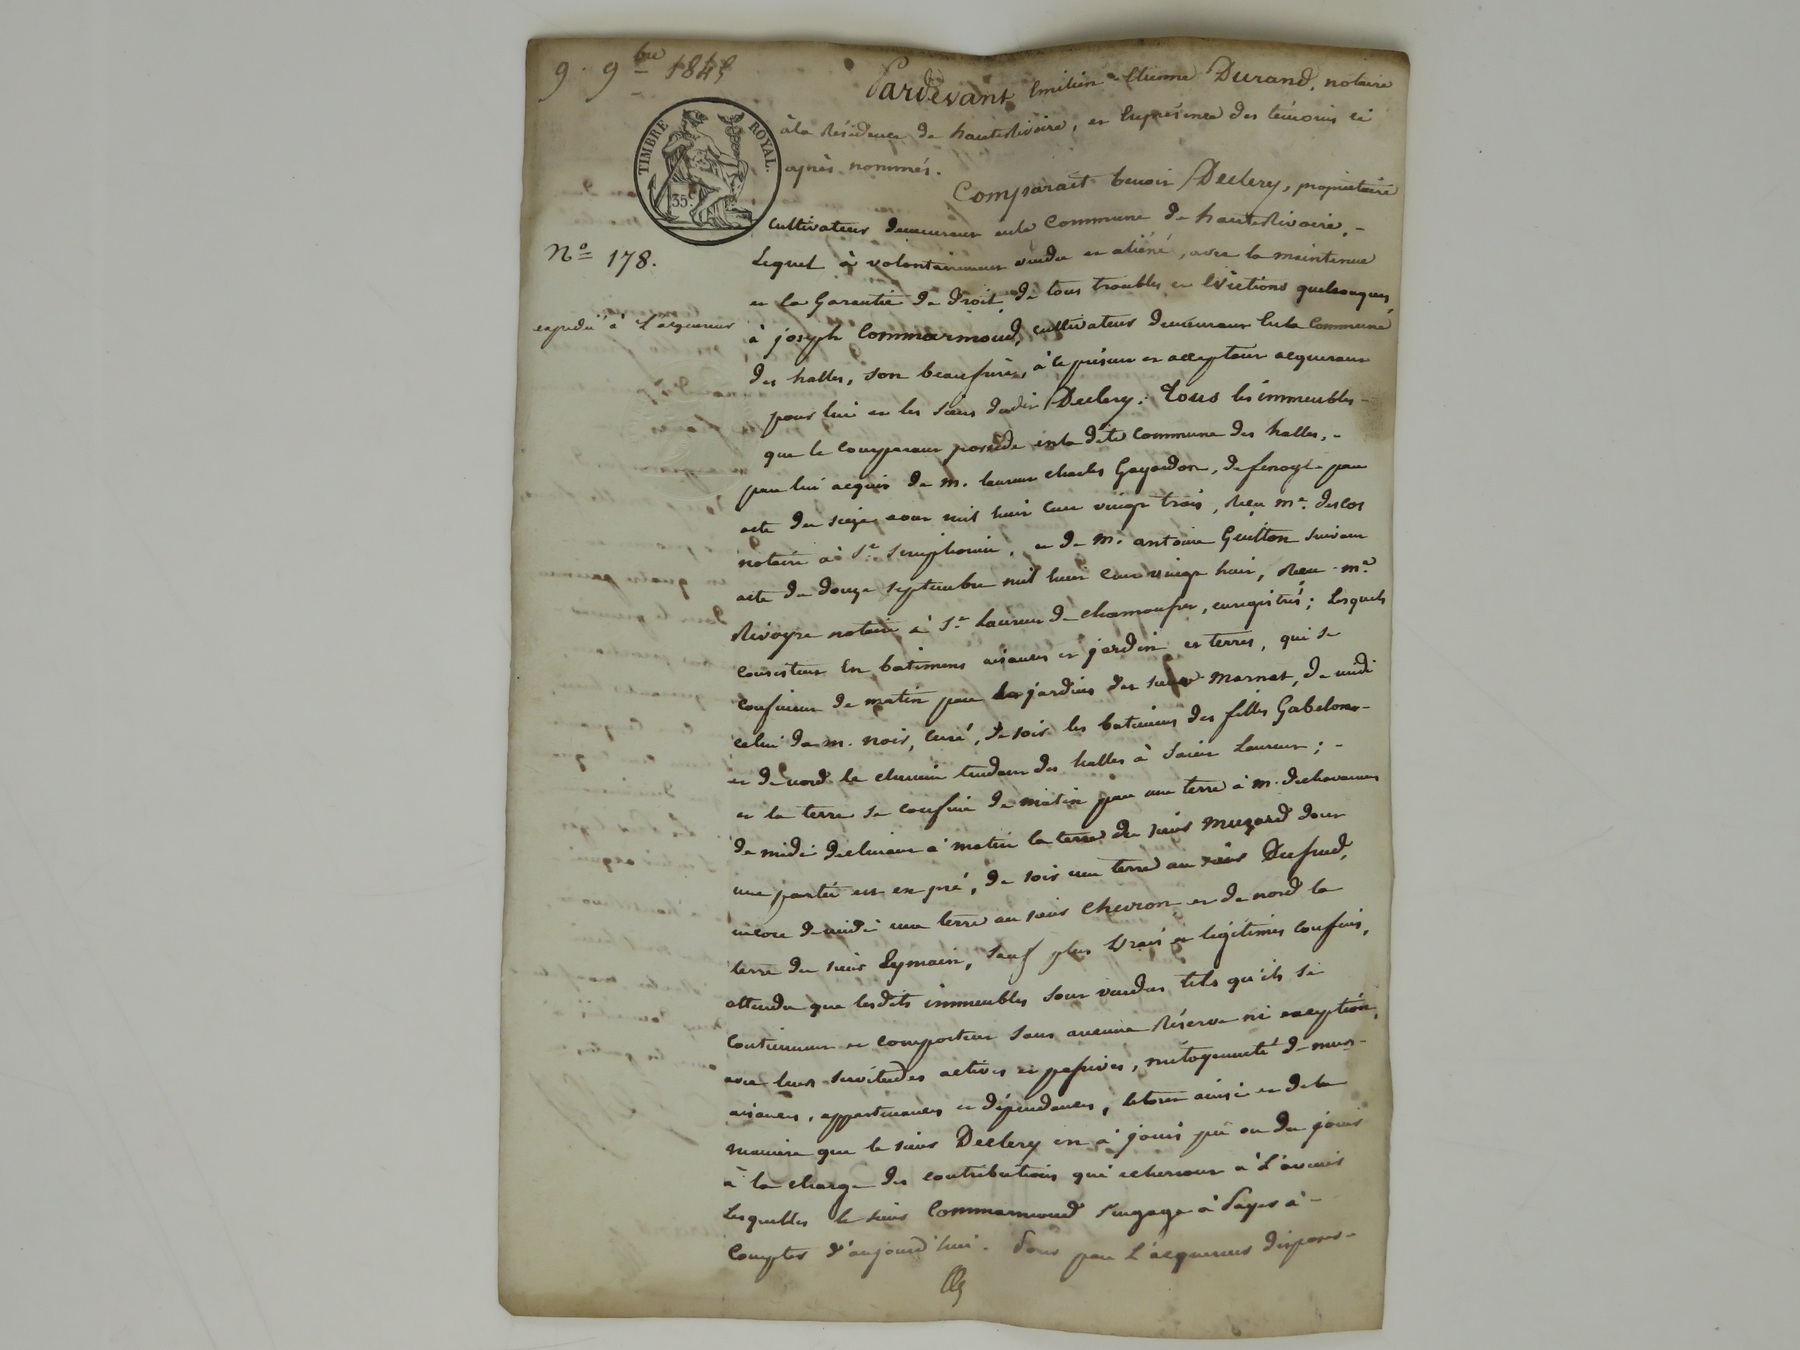 9 9bre 184
TIMBRE ROYAL.
35c
No 178.
expédié à l'acquéreur
Pardevant Emilien Etienne Durand, notaire
à la Résidence de hauteRivoire, et En présence des témoins ci
après nommés.
Comparait benoit Declery, propriétaire
cultivateur demeurant en la Commune de hauteRivoire, -
Lequel à volontairement vendu et aliéné, avec la maintenue
et la Garantie de Droit de tous troubles et Evictions quelconques,
à joseph Commarmond, cultivateur demeurant En la Commune
des halles, son beaufrère, à ce présent et acceptant acquéreur
pour lui et les siens dudit Declery : Tous les immeubles -
que le comparant possède en la dite Commune des halles, -
par lui acquis de m. laurent charles Gayardon, de fenoyl par
acte du seize aout mil huit cent vingt trois, Reçu me. descos
notaire à St. Simphorien, et de m. antoine Guitton suivant
acte du douze septembre mil huit cent vingt huit, Reçu me.
Rivoyre notaire à St Laurent de chamousset, enregistrés ; Lesquels
consistent En batimens aisances et jardin et terres, qui se
confinent de matin par les jardins des sieurs Marnat, de midi
celui de m. noir, curé, de soir les batimens des filles Gabelon -
et de nord le chemin tendant des halles à Saint Laurent ; -
et la terre se confine de matin par une terre à m. dechavannes
de midi declinant à matin la terre du sieur Muzard dont
une partie est en pré, de soir une terre au sieur Dufud,
encore de midi une terre au sieur Chevron et de nord la
terre du sieur Eymain, sauf plus vrais et légitimes confins,
attendu que lesdits immeubles sont vendus tels qu'ils se
contiennent et comportent sans aucune Réserve ni exception,
avec leurs servitudes actives et passives, mitoyenneté de murs -
aisances, appartenances et dépendances, le tout ainsi et de la
manière que le sieur Declery en à joui pû ou du jouir
à la charge des contributions qui echerront à l'avenir
Lesquelles le sieur Commarmond s'engage à Payer à -
Compter d'aujourd'hui. Pour par L'acquéreur disposer -